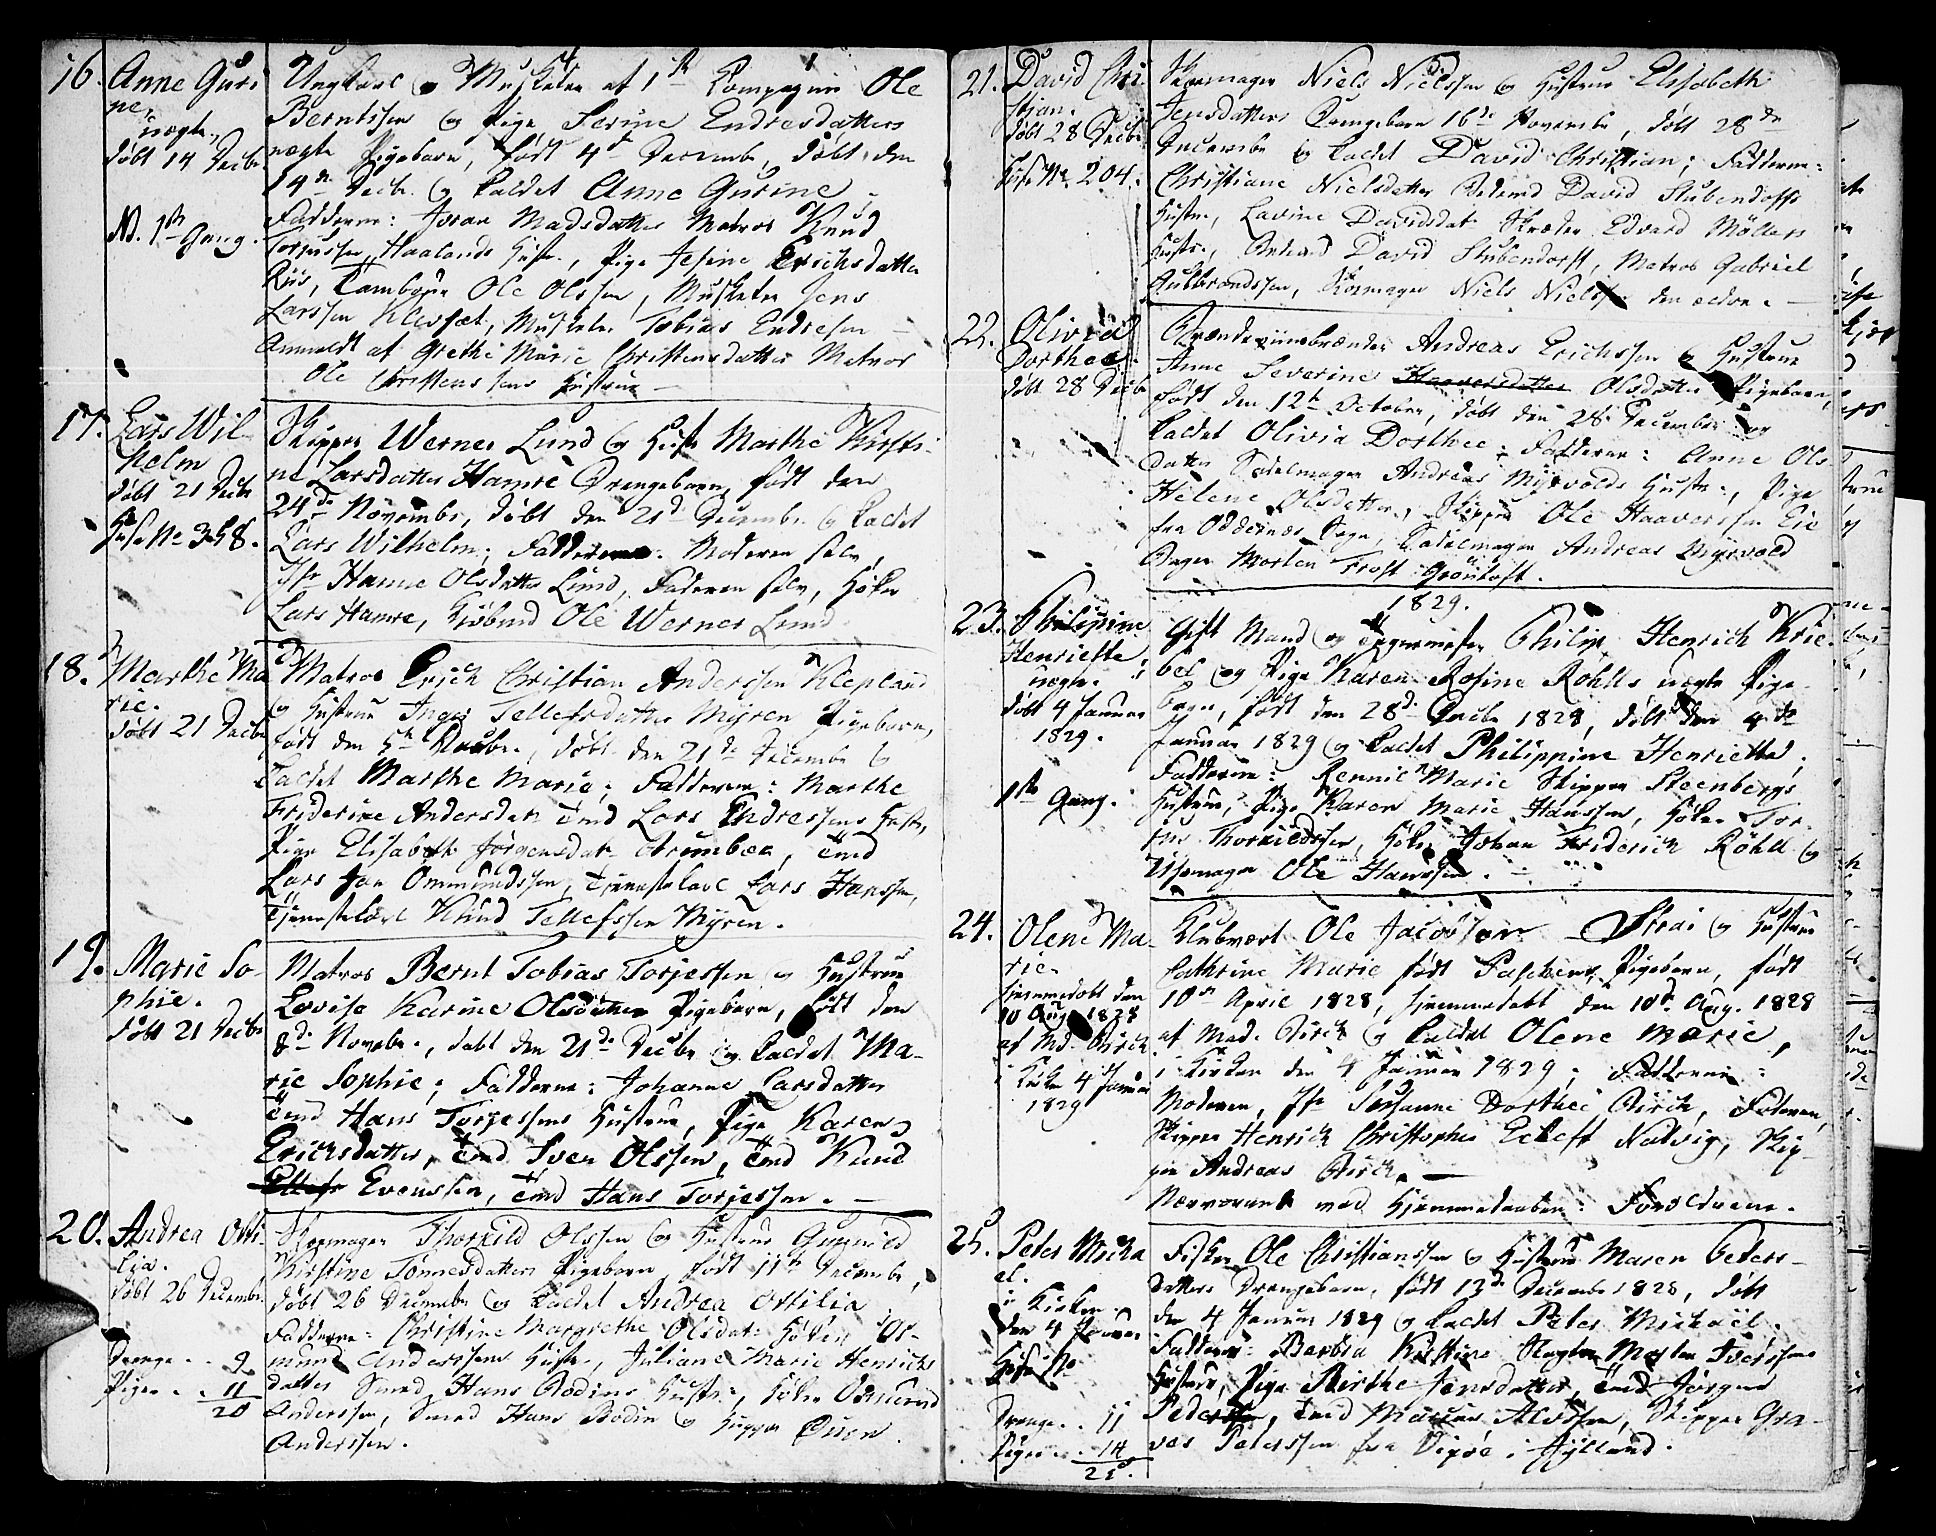 16. Anne Guri
ne,
uægte,
døbt 14 Decbr
N. 1ste Gang.
Ungkarl og Musketer af 1ste Compagnie Ole
Berntssen og Pige Serine Endresdatters
uægte Pigebarn, født 4de Decembr, døbt den
14de Decbr. og kaldet Anne Gurine.
Fadderne: Joran Madsdatter Matros Knud
Torjussen Haalands Hustr., Pige Jesine Erichsdatter
Riis, Tambour Ole Olssen, Musketer Jens
Larssen Klevset, Musketer Tobias Endresen
Anmeldt af Grethe Marie Christensdatter Matros
Ole Christenssens Hustrue
17. Lars Wil-
helm
døbt 21 Decbr
Huse No 358.
Skipper Werner Lund og Hustr Marthe Kirsti-
ne Larsdatter Hamre Drengebarn, født den
24de Novembr, døbt den 21de Decembr og kaldet
Lars Wilhelm; Fadderne: Moderen selv,
Jfr Hanne Olsdatter Lund, Faderen selv, Høker
Lars Hamre, Ole Werner Lund
18. Marthe Ma
rie.
døbt 21 Decbr
Matros Erich Christian Anderssen Klepland
og Hustrue Inger Tellefsdatters Myren Pigebarn,
født den 5te Decbr., døbt den 21de Decembr og
kaldet Marthe Marie; Fadderne: Marthe
Friderine Andersdatr Tmd Lars Endressens Hustr,
Pige Elisabeth Jørgensdatr Trumber, Tmd
Lars Jan Ommundssen, Tjenestekarl Lars Hanssen,
Tjenestekarl Knud Tellefssen Myren.
19. Marie So-
phie.
døbt 21 Decbr
Matros Bernt Tobias Torjessen og Hustrue
Lovise Karine Olsdatters Pigebarn, født den
8de Novebr., døbt den 21de Decbr og kaldet Ma-
rie Sophie; Fadderne: Johanne Larsdatter
Tmd Hans Torjessens Hustrue, Pige Karen
Erichsdatter, Tmd Sven Olssen, Tmd Knud
Evenssen, Tmd Hans Torjessen.
20. Andrea Otti-
lia.
døbt 26 Decembr.
Drenge . . 9
Piger . . 11
20
Skomager Thorkild Olssen og Hustrue Gunnild
Kirstine Tønnesdatters Pigebarn født 11te Decembr,
døbt 26 Decembr og kaldet Andrea Ottilia
Fadderne: Christine Margrethe Olsdatr Høker Os-
mund Anderssens Hustr, Juliane Marie Henrichs
datter Smed Hans Bodins Hustr, Høker Osmund
Anderssen, Smed Hans Bodin og Skipper
Anderssen.
21. David Chri
stian.
døbt 28 Decbr
Huse No 204.
Skomager Niels Nielssen og Hustrue Elisabeth
Jensdatters Drengebarn 16de Novembr, døbt 28de
Decembr og kaldet David Christian; Fadderne:
Christiane Nielsdatter David Stubendorffs
Hustr, Lavine Davidsdatr Skræder Edvard Möllers
Hustr., David Stubendorff, Matros Gabriel
Gulbrandssen, Skomager Niels Nielss. den ældre.
22. Olivia
Dorthea.
døbt 28 Decbr
Brændeviinsbrænder Andreas Erichssen og Hustrue
Anne Severine Haaversdatter Olsdatters Pigebarn,
født den 12te October, døbt den 28 December og
kaldet Olivia Dorthee; Fadderne: Anne Ols
datter Sadelmager Andreas Myrvolds Hustr., Pige
Helene Olsdatter, Skipper Ole Haaverssen Eie
fra Oddernæs Sogn, Sadelmager Andreas Myrvold
Bager Morten Frost Grøntoft.
1829.
23. Philipine
Henriette
uægte.
døbt 4 Januar
1829.
1ste Gang.
Gift Mand og Philip Henrich Krie-
bel og Pige Karen Rosine Röhlls uægte Pige-
barn, født den 28de Decbr 1828, døbt den 4de
Januar 1829 og kaldet Philippine Henrietta,
Fadderne: Rennie Marie Skipper Steenbergs
Hustrue, Pige Karen Marie Hanssen, Høker Tor-
Thorkildssen, Høker Johan Friderich Röhll og
Ole Hanssen.
24. Olene Ma-
rie.
hjemmedøbt den
10 Aug 1828
af Md. Birch
i Kirken 4 Januar
1829
Klubvært Ole Jacobsen Strai og Hustrue
Cathrine Marie født Paschens Pigebarn, født
10de April 1828, hjemmedøbt den 10de Aug. 1828
af Mad. Birch og kaldet Olene Marie,
i Kirken den 4 Januar 1829; Fadderne:
Moderen, Jfr Susanne Dorthei Birch, Faderen,
Skipper Henrich Christopher Ecleff Natvig, Skip-
per Andreas Birch.
Nærværende ved Hjemmedaaben: Forældrene.
25. Peter Micha
el.
i Kirken
den 4 Januar
Huse No
Drenge . . 11
Piger . . 14
25.
Fisker Ole Christianssen og Hustrue Maren Peders-
datters Drengebarn, født 13de December 1828, døbt
den 4 Januar 1829 og kaldet Peter Michael.
Fadderne: Barbra Kirstine Morten Iverssens
Hustrue, Pige Birthe Jensdatter, Tmd Jørgen
Pederssen, Tmd Alvssen, Skipper Gra-
ves Peterssen fra i Jylland.